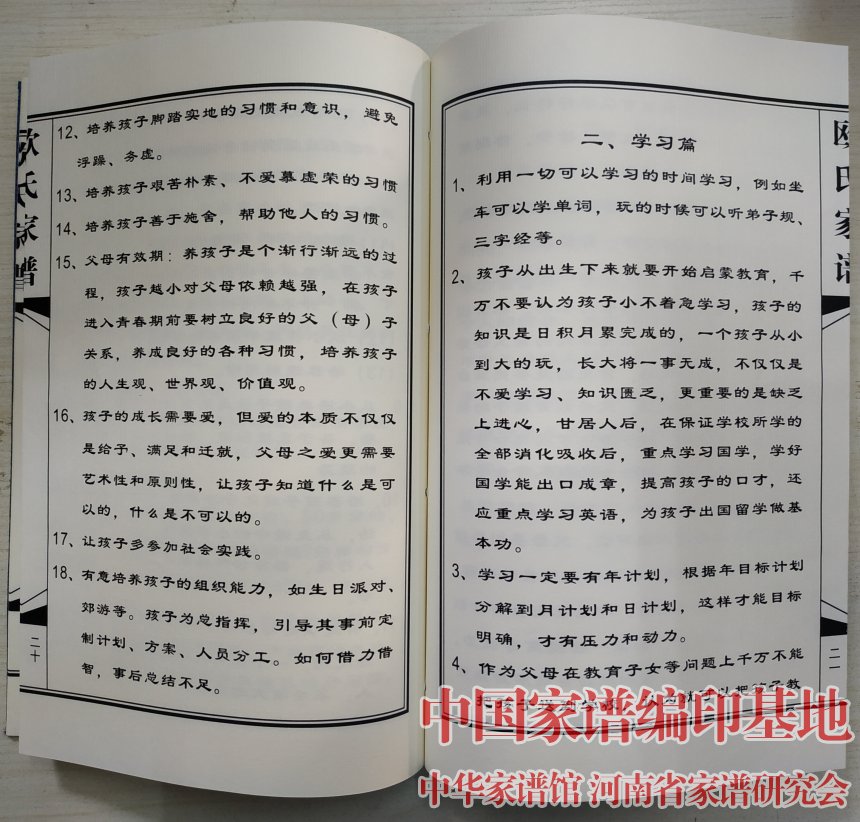 12、培养孩子脚踏实地的习惯和意识，避免
浮躁、务虚。
13、培养孩子艰苦朴素、不爱慕虚荣的习惯
14、培养孩子善于施舍，帮助他人的习惯。
15、父母有效期：养孩子是个渐行渐远的过
程，孩子越小对父母依赖越强，在孩子
进入青春期前要树立良好的父（母）子
关系，养成良好的各种习惯，培养孩子
的人生观、世界观、价值观。
16、孩子的成长需要爱，但爱的本质不仅仅
是给予、满足和迁就，父母之爱更需要
艺术性和原则性，让孩子知道什么是可
以的，什么是不可以的。
17、让孩子多参加社会实践。
18、有意培养孩子的组织能力，如生日派对、
郊游等。孩子为总指挥，引导其事前定
制计划、方案、人员分工。如何借力借
智，事后总结不足。
二十
二、学习篇
1、利用一切可以学习的时间学习，例如坐
车可以学单词，玩的时候可以听弟子规、
三字经等。
2、孩子从出生下来就要开始启蒙教育，千
万不要认为孩子小不着急学习，孩子的
知识是日积月累完成的，一个孩子从小
到大的玩，长大将一事无成，不仅仅是
不爱学习、知识匮乏，更重要的是缺乏
上进心，甘居人后，在保证学校所学的
全部消化吸收后，重点学习国学，学好
国学能出口成章，提高孩子的口才，还
应重点学习英语，为孩子出国留学做基
本功。
3、学习一定要有年计划，根据年目标计划
分解到月计划和日计划，这样才能目标
明确，才有压力和动力。
4、作为父母在教育子女等问题上千万不能
把孩子送到学校，认为就可以把孩子教
欧氏家谱
二一
欧氏家谱
中国家谱编印基地
中华家谱馆 河南省家谱研究会